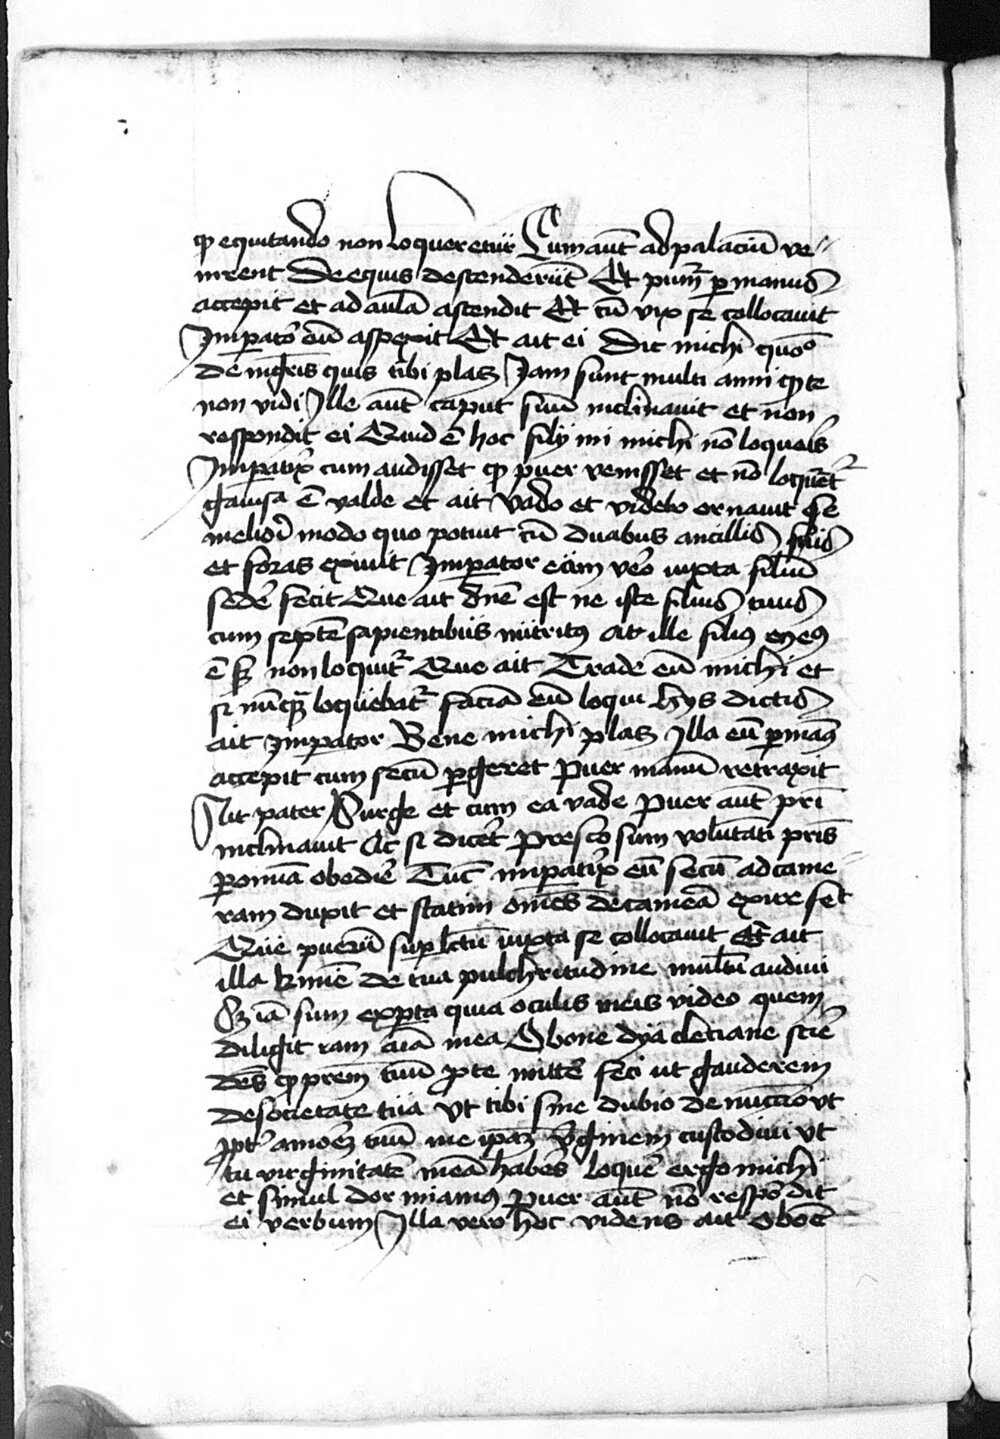 qꝫ equitando non loqueretur Cum aut̄ ad palaciū ve//
nirent De equis descenderūt Et puerū per manus
accepit et ad aulā ascendit Et cū vix se collocauit
Imperator eū aspexit Et ait ei Dic michi quo
de mgr̄is quis tibi plaz Jam sunt multi anni qꝫ te
non vidi Ille aut̄ caput suū inclinauit et non
respondit ei Quid ē hoc fily mi michi nō loqueris
Imperatrix cum audisset qꝫ puer venisset et nō loqueret̄
gauisa ē valde et ait vado et videbo ornauit se
meliori modo quo potuit cū duabus ancillis suis
et foras exiuit Imperator eām vero iuxta filiū
sedē fecit Que ait dn̄e est ne iste filius tuus
cum septē sapientibus nutritus ait ille filius meus
ē sꝫ non loquit̄ Que ait Trade eū michi et
si nūqꝫ loquebat̄ faciā eū loqui hys dictis
ait Imperator Bene michi plaz Illa eū per manus
accepit cum secū pergeret Puer manū retraxit
Ait pater Surge et cum ea vade Puer aut̄ pri
inclinauit Ac si dicēt Presto sum volūtati pris
per omīa obedire Tūc imperatrix eū secū ad came//
ram duxit et statim om̄es de camerā exire fec̄
Que puerū super lectū iuxta se collocauit Et ait
illa karissime de tua pulchritudine multū audiui
Sꝫ iā sum experta quia oculis meis video quem
diligit ram aīa mea O bone dyacleciane scie
des qꝫ prem tuū pro te mitte feci ut gauderem
de societate tua vt tibi sine dubio denuccio vt
propt̄ amorē tuū me ipaꝫ v̄ginem custodiui vt
tu virginitatē meā haberes loquē ergo michi
et simul dormiamus Puer aut̄ nō respōdit
ei verbum Illa vero hoc videns ait O bone